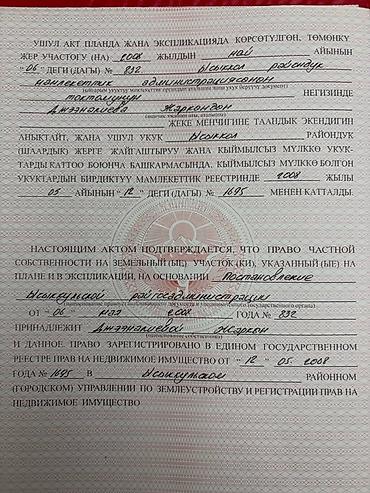 УШУЛ АКТ ПЛАНДА ЖАНА ЭКСПЛИКАЦИЯДА КӨРСӨТҮЛГӨН, ТӨМӨНКҮ
ЖЕР УЧАСТОГУ (НА) 2008 ЖЫЛДЫН май АЙЫНЫН
"06" ДЕГИ (ДАГЫ) № 832 Ысыккөл райондук
мамлекеттик администрациясынын
токтомунун НЕГИЗИНДЕ
Джээналиева Жаркондон
ЖЕКЕ МЕНЧИГИНЕ ТААНДЫК ЭКЕНДИГИН
АНЫКТАЙТ, ЖАНА УШУЛ УКУК Ысыккол РАЙОНДУК
(ШААРДЫК) ЖЕРГЕ ЖАЙГАШТЫРУУ ЖАНА КЫЙМЫЛСЫЗ МҮЛККӨ УКУК-
ТАРДЫ КАТТОО БОЮНЧА БАШКАРМАСЫНДА, КЫЙМЫЛСЫЗ МҮЛККӨ БОЛГОН
УКУКТАРДЫН БИРДИКТҮҮ МАМЛЕКЕТТИК РЕЕСТРИНДЕ 2008 ЖЫЛЫ
05 АЙЫНЫН "12" ДЕГИ (ДАГЫ) № 1695 МЕНЕН КАТТАЛДЫ.
НАСТОЯЩИМ АКТОМ ПОДТВЕРЖДАЕТСЯ, ЧТО ПРАВО ЧАСТНОЙ
СОБСТВЕННОСТИ НА ЗЕМЕЛЬНЫЙ (ЫЕ) УЧАСТОК (КИ), УКАЗАННЫЙ (ЫЕ) НА
ПЛАНЕ И В ЭКСПЛИКАЦИИ, НА ОСНОВАНИИ Постановление
Ысыккульской райгосадминистрации
ОТ "06 мая 2008 ГОДА № 832
ПРИНАДЛЕЖИТ Джээналиевой Жаркон
И ДАННОЕ ПРАВО ЗАРЕГИСТРИРОВАНО В ЕДИНОМ ГОСУДАРСТВЕННОМ
РЕЕСТРЕ ПРАВ НА НЕДВИЖИМОЕ ИМУЩЕСТВО ОТ "12" 05 2008
ГОДА № 1695 В Ысыккульском РАЙОННОМ
(ГОРОДСКОМ) УПРАВЛЕНИИ ПО ЗЕМЛЕУСТРОЙСТВУ И РЕГИСТРАЦИИ ПРАВ НА
НЕДВИЖИМОЕ ИМУЩЕСТВО